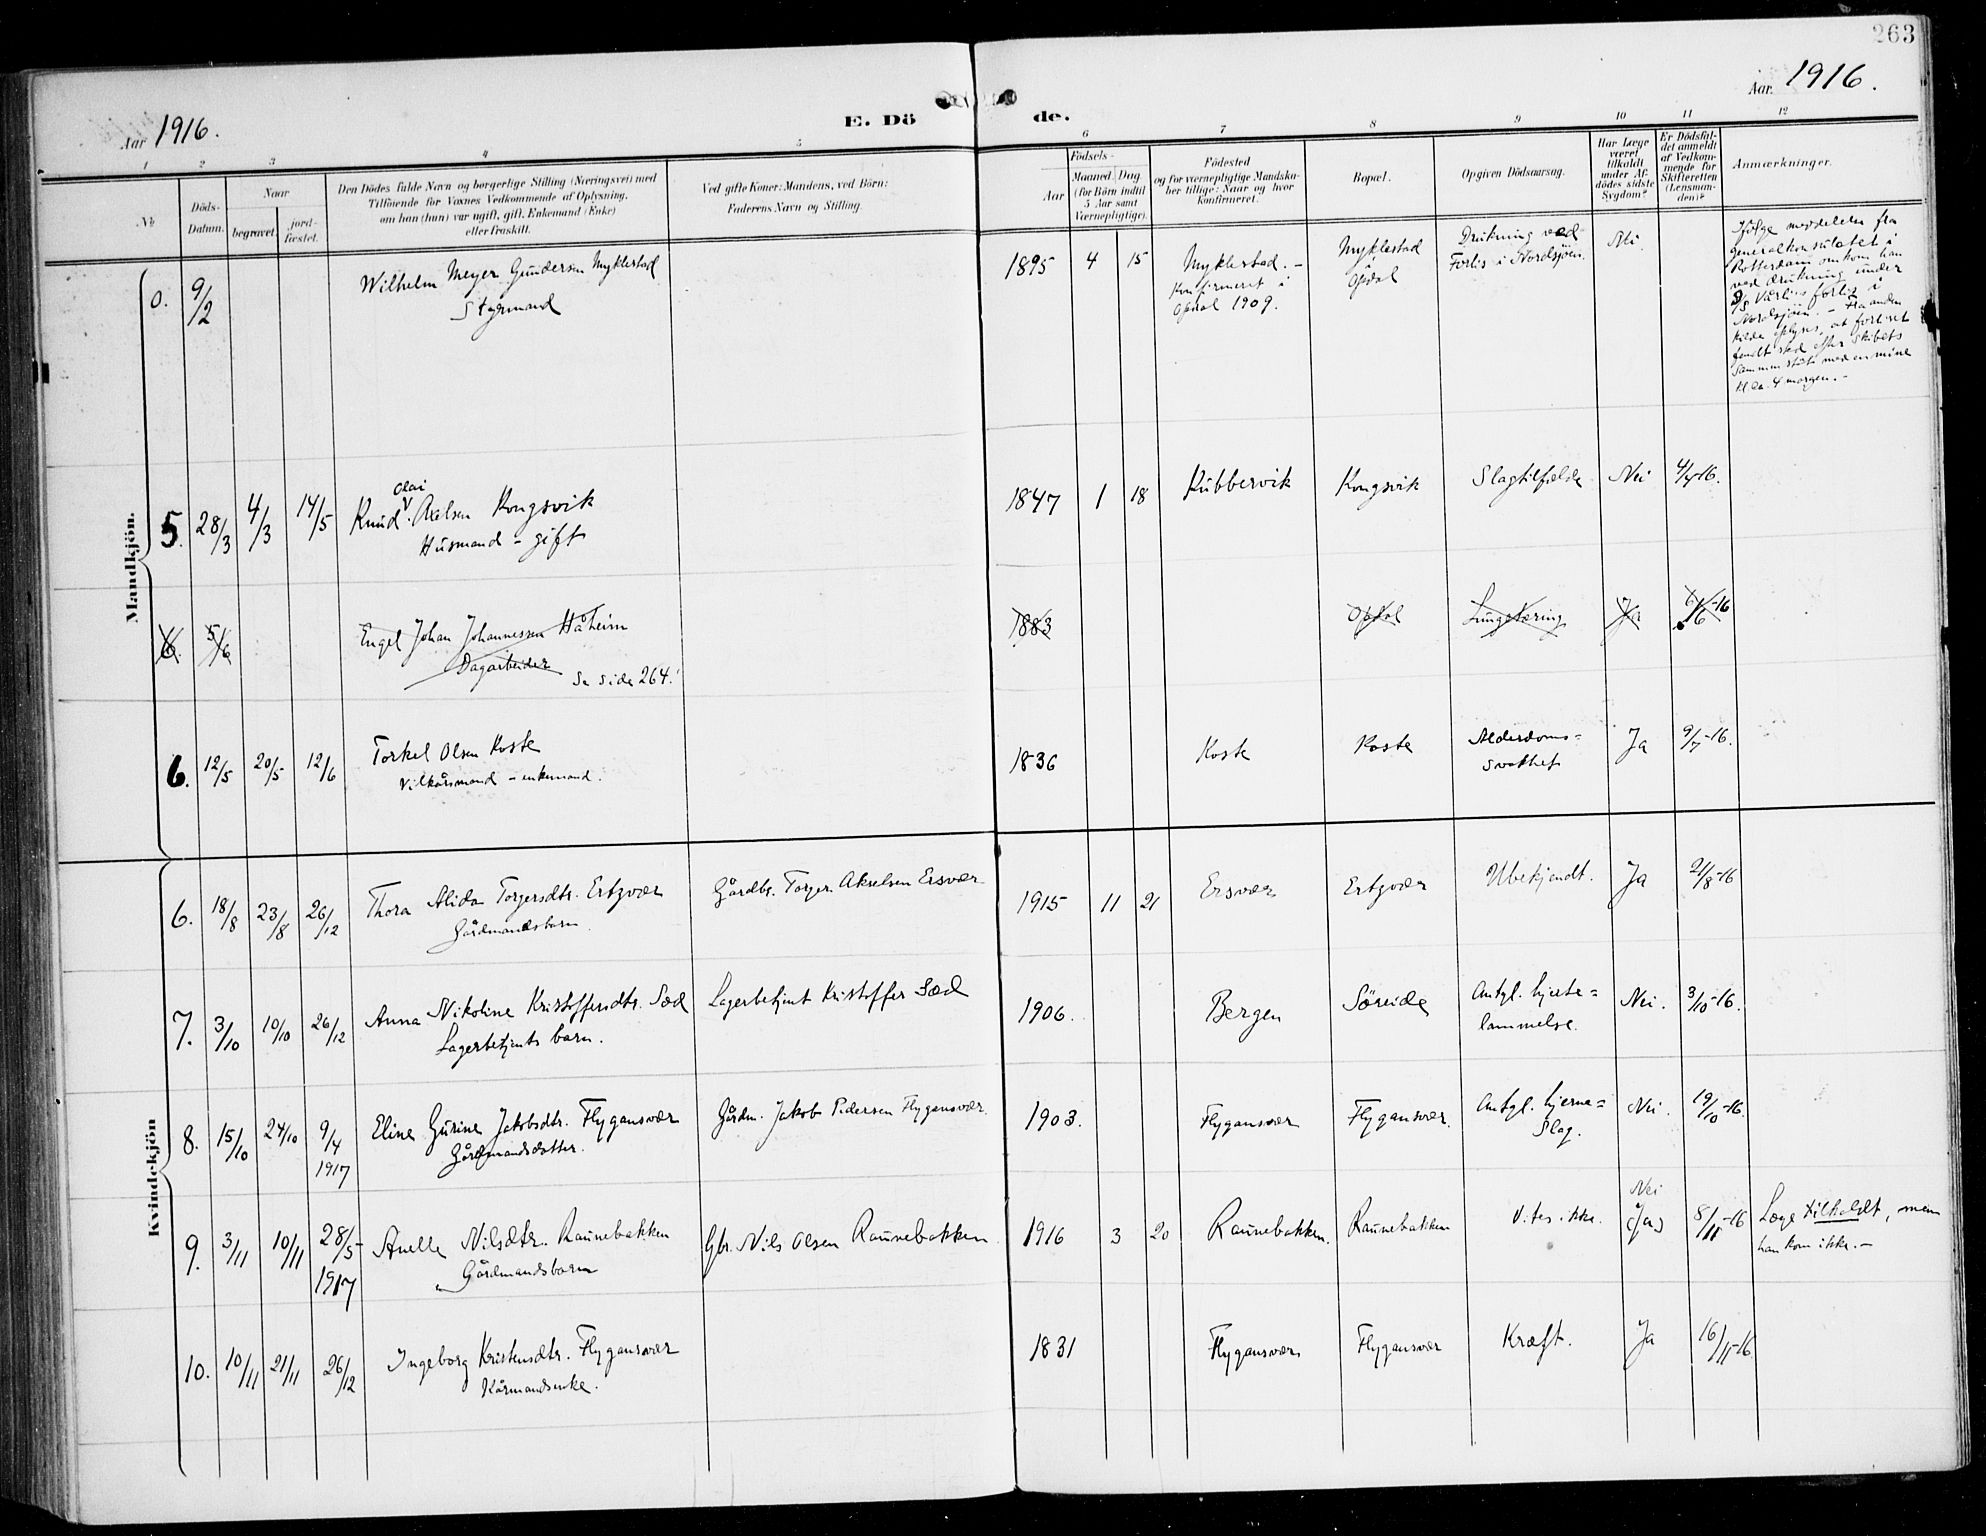 263
Aar 1916.
E. Dö
de.
Aar. 1916.
1 2 3 4 5 6 7 8 9 10 11 12
No.
Döds-
Datum.
Naar
begravet.
jord-
fæstet.
Den Dödes fulde Navn og borgerlige Stilling (Næringsvei) med
Tilföiende for Voxnes Vedkommende af Oplysning,
om han (hun) var ugift, gift, Enkemand (Enke)
eller fraskilt.
Ved gifte Koner: Mandens, ved Börn:
Faderens Navn og Stilling.
Födsels-
Aar
Maaned. Dag
(for Börn indtil
5 Aar samt
Værnepligtige).
Födested
og for værnepligtige Mandska-
ber tillige: Naar og hvor
konfirmeret.
Bopæl.
Opgiven Dödsaarsag.
Har Læge
været
tilkaldt
under Af-
dödes sidste
Sygdom?
Er Dödsfal-
det anmeldt
af Vedkom-
mende for
Skifteretten
(Lensman-
den)?
Anmærkninger.
Mandkjön.
0. 9/2 Wilhelm Meyer Gundersen Myklestad
Styrmand
1895 4 15 Myklestad. -
Konfirmeret i
Opdal 1909.
Myklestad
Opdal
Drukning ved
Forlis i Nordsjøen.
Nei.
Ifølge meddelelse fra
generalkonsulatet i
Rotterdam omkom han
ved drukning under
D/S forlis i
Nordsjøen. - Fra anden
kilde oplyses, at forliset
fandt sted efter skibets
sammenstøt med en mine
kl. ca. 4 morgen. -
5. 28/3 4/3 14/5 Knud Olai Axelsen Kongsvik
Husmand - gift
1847 1 18 Kubbervik Kongsvik Slagtilfælde Nei 4/4-16.
6. 5/6 Engel Johan Johannessen Håheim
Dagarbeider
Se side 264!
1883 Opdal Lungetæring Ja 6/6-16
6. 12/5 20/5 12/6 Torkel Olsen Koste
Vilkårsmand - enkemand.
1836 Koste Koste Alderdoms=
svakhet Ja 9/7-16.
Kvindekjön
6. 18/8 23/8 26/12 Thora Alida Torgersdtr. Ertzvær
Gårdmandsbarn
Gårdbr. Torger Akselsen Ersvær
1915 11 21 Ersvær Ertzvær Ubekjendt. Ja 21/8-16
7. 3/10 10/10 26/12 Anna Nikoline Kristoffersdtr. Sæd
Lagerbetjents barn.
Lagerbetjent Kristoffer Sæd
1906. Bergen Søreide Antgl. hjerte=
lammelse. Nei. 3/10-16.
8. 15/10 24/10 9/4
1917
Eline Gurine Jakobsdtr. Flygansvær
Gårdmandsdatter.
Gårdm. Jakob Pedersen Flygansvær.
1903. Flygansvær Flygansvær. Antgl. hjerne=
slag. Nei. 19/10-16.
9. 3/11 10/11 28/5-
1917
Anelle Nilsdtr. Raunebakken
Gårdmandsbarn
Gbr. Nils Olsen Raunebakken
1916 3 20 Raunebakken. Raunebakken Vites ikke. Nei
(Ja) 8/11-16 Læge tilkaldt, men
han kom ikke. -
10. 10/11 21/11 26/12 Ingeborg Kristensdtr. Flygansvær
Kårmandsenke.
1831 Flygansvær Flygansvær Kræft. Ja 16/11-16.